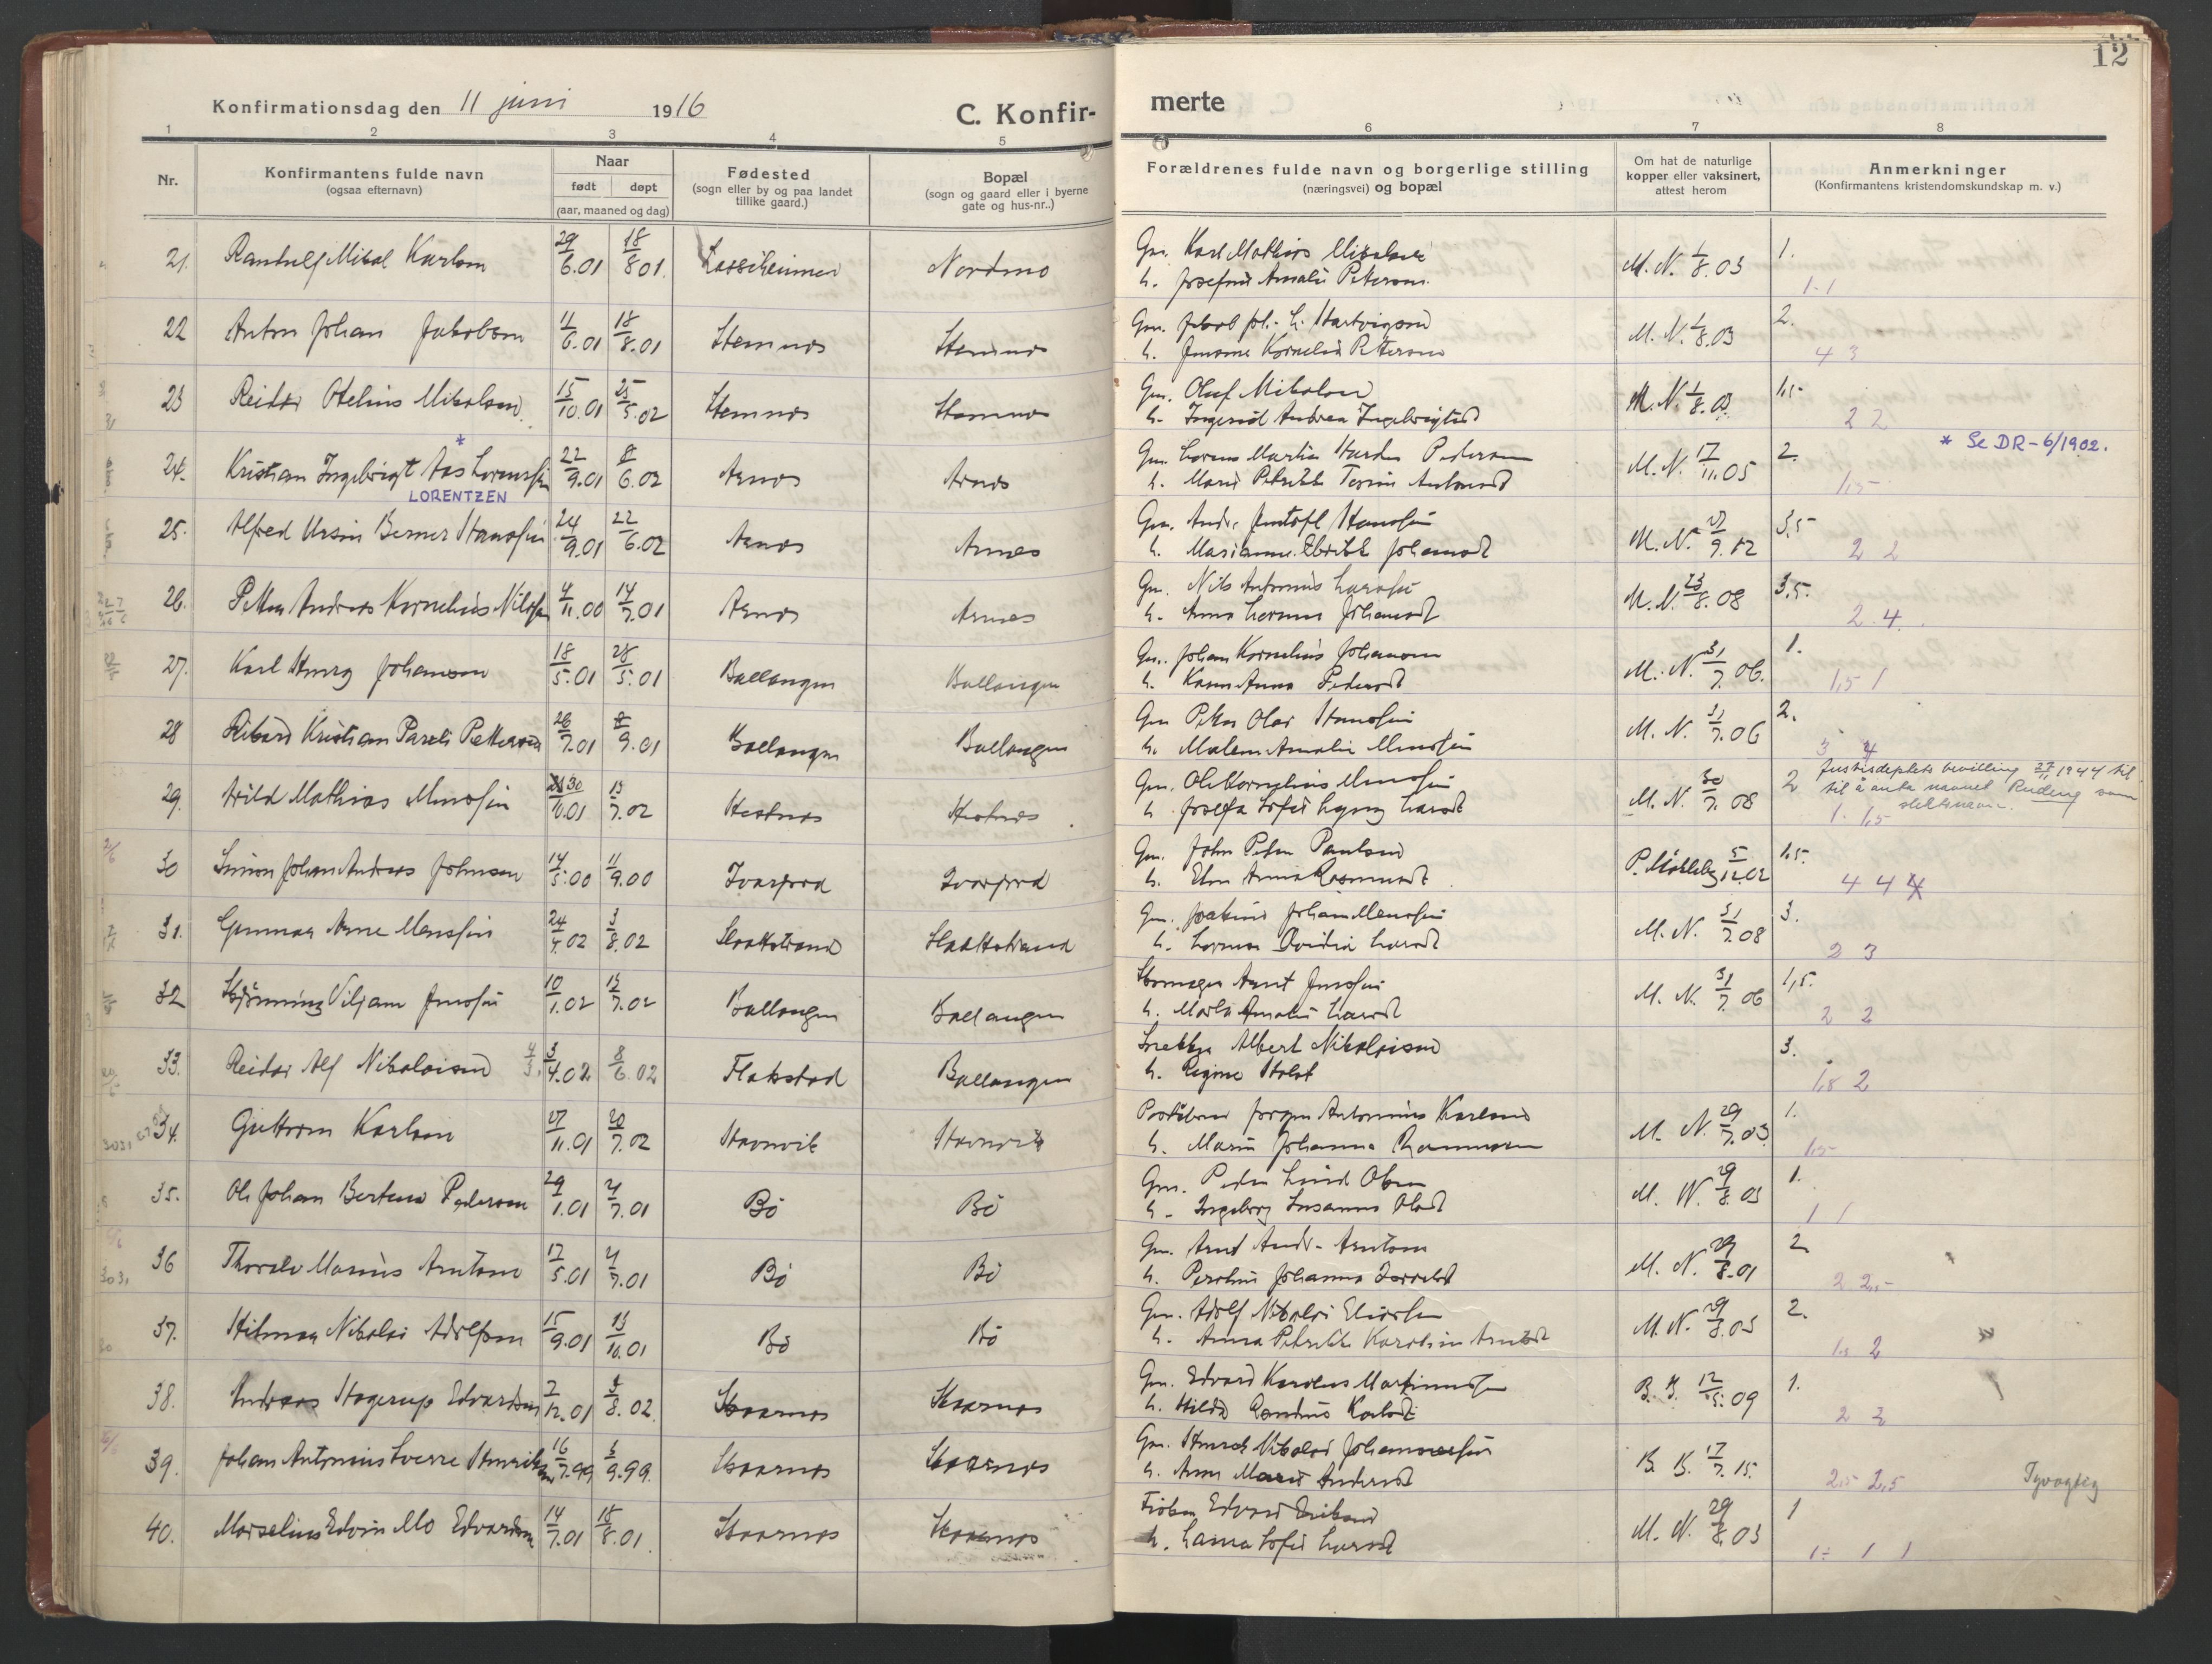 12
Konfirmationsdag den 11 juni 1916
C. Konfir-
merte
1 2 3 4 5 6 7 8
Nr.
Konfirmantens fulde navn
(ogsaa efternavn)
Naar
født døpt
(aar, maaned og dag)
Fødested
(sogn eller by og paa landet
tillike gaard.)
Bopæl
(sogn og gaard eller i byerne
gate og hus-nr..)
Forældrenes fulde navn og borgerlige stilling
(næringsvei) og bopæl
Om hat de naturlige
kopper eller vaksinert,
attest herom
Anmerkninger
(Konfirmantens kristendomskundskap m. v.)
21. Mikal Karlsen 29/6.01 18/8 01. Nordmo
Gm. Karl Mathias Mikalsen M. N. 1/8.03 1.
h. Josefine Amalie Petersen 1.1
22 Anton Johan Jakobsen 11/6.01 18/8.01 Stemnes Stemnes
Gm. Jakob Joh. L. Hartvigsen M. N. 1/8.03 2.
h. Kornelia Pettersen 4 3
23 Reidar Otelius Mikalsen 15/10.01 25/5.02 Stemnes Stemnes
Gm. Oluf Mikalsen M. N. 1/8.03 1,5
h. Ingerid Andrea Ingebrigtsd 2 2
*
24. Kristian Ingebrigt Aas Lorentsen 22/9.01 8/6.02 Arnes Arnes
LORENTZEN
Gm. Lorens Martin Pedersen M. N. 17/11.05 2. * Se DR-6/1902.
h. Marie Petrikke Antonsd 1,5
25. Alfred Ursin Berner Hansen 24/9.01 22/6.02 Arnes Arnes
Gm. Andr. Jentoft Hansen M. N. 27/9.12 3,5
h. Marianne Elrikke Johansd 2 2
26. Petter Andreas Kornelius Nilsen 4/11.00 14/7.01 Arnes Arnes
Gm. Nils Antonius Larsen M. N. 23/8.08 3,5.
h. Anna Johansd 2.4.
27. Karl Henry Johansen 18/5.01 28/5.01 Ballangen Ballangen
Gm. Johan Kornelius Johansen M. N. 31/7.06. 1.
h. Karen Anna Pedersd 1,5 1
28 Rikard Kristian Pareli Pettersen 26/7.01 8/9.01 Ballangen Ballangen
Gm Peter Olai Hansen M. N. 31/7.06 2.
h. Malene Amalie Monsen 3 4
29. Arild Mathias Monsen 30/10.01 13/7.02 Hestnes Hestnes
Gm. Ole Kornelius Monsen M. N. 30/7.08 2 Justisdeptets bevilling 27/11 1944 til
h. Josefa Sofie Lyng Larsd til å anta navnet Rudeng som
slektsnavn.
1. 1,5
30 Simon Johan Andreas Johnsen 14/5.00 11/9.00 Ivarjord Ivarjord
Gm. John Peder Paulsen 5/12.02 1,5.
h. Elen Anna Rasmusd 4 4 4
31. Gunnar Arne Monsen 24/4.02 3/8.02 Slaatstrand Slaattstrand
Gm. Joakim Johan Monsen M. N. 31/7.08 3.
h. Ovidia Larsd 2 3
32 Viljam Jensen 10/1.02 13/7.02 Ballangen Ballangen
Arnt Jensen M. N. 31/7.06 1,5.
h. Marta Amalie Larsd 2 2
33. Reidar Alf Nikolaisen 4/3. 3/4.02 8/6.02 Flakstad Ballangen
Snekker Albert Nikolaisen 3.
h. Regine Holst 1,5 2
34. Guttorm Karlsen 27/11.01 20/7.02 Stavnvik Stavnvik
Jørgen Antonius Karlsen M. N. 29/7.03. 1.
h. Marie Johanna Rasmussen 1,5
35. Ole Johan Berteus Pedersen 29/1.01 21/7.01 Bø Bø
Gm. Peder Lund Olsen M. N. 29/8.03 1.
h. Ingeborg Susanna Olsd 1 1
36 Thoralv Marius Arntsen 12/5.01 21/7.01 Bø Bø
Gm. Arnt Andr. Arntsen M. N. 29/8.01 2
h. Johanna 2 2,5
37. Hilmar Nikolai Adolfsen 15/9.01 13/10.01 Bø Bø
Gm. Adolf Nikolai Eliassen M. N. 29/8.03 2.
h. Anna Petrikke Karoline Arntsd 1,5 2
38. Andreas Hagerup Edvardsen 2/12.01 3/8.02. Skarnes Skarnes
Gm. Edvard Karelius Martinussen B. B. 12/5.09 1.
h. Hilda Karlsd 2 2
39. Johan Antonius Sverre Henriksen 16/7.99 3/9.99. Skarnes Skarnes
Gm. Henrik Nikolai Johannessen B. B. 17/7.15.
h. Anne Marie Andersd 2,5 2,5 Tyvagtig
40. Marselius Edvin Mo Edvardsen 14/7.01 18/8.01. Skarnes Skarnes
Edvard Eriksen M. N. 29/8.03 1
h. Laura Sofie Larsd 1 1